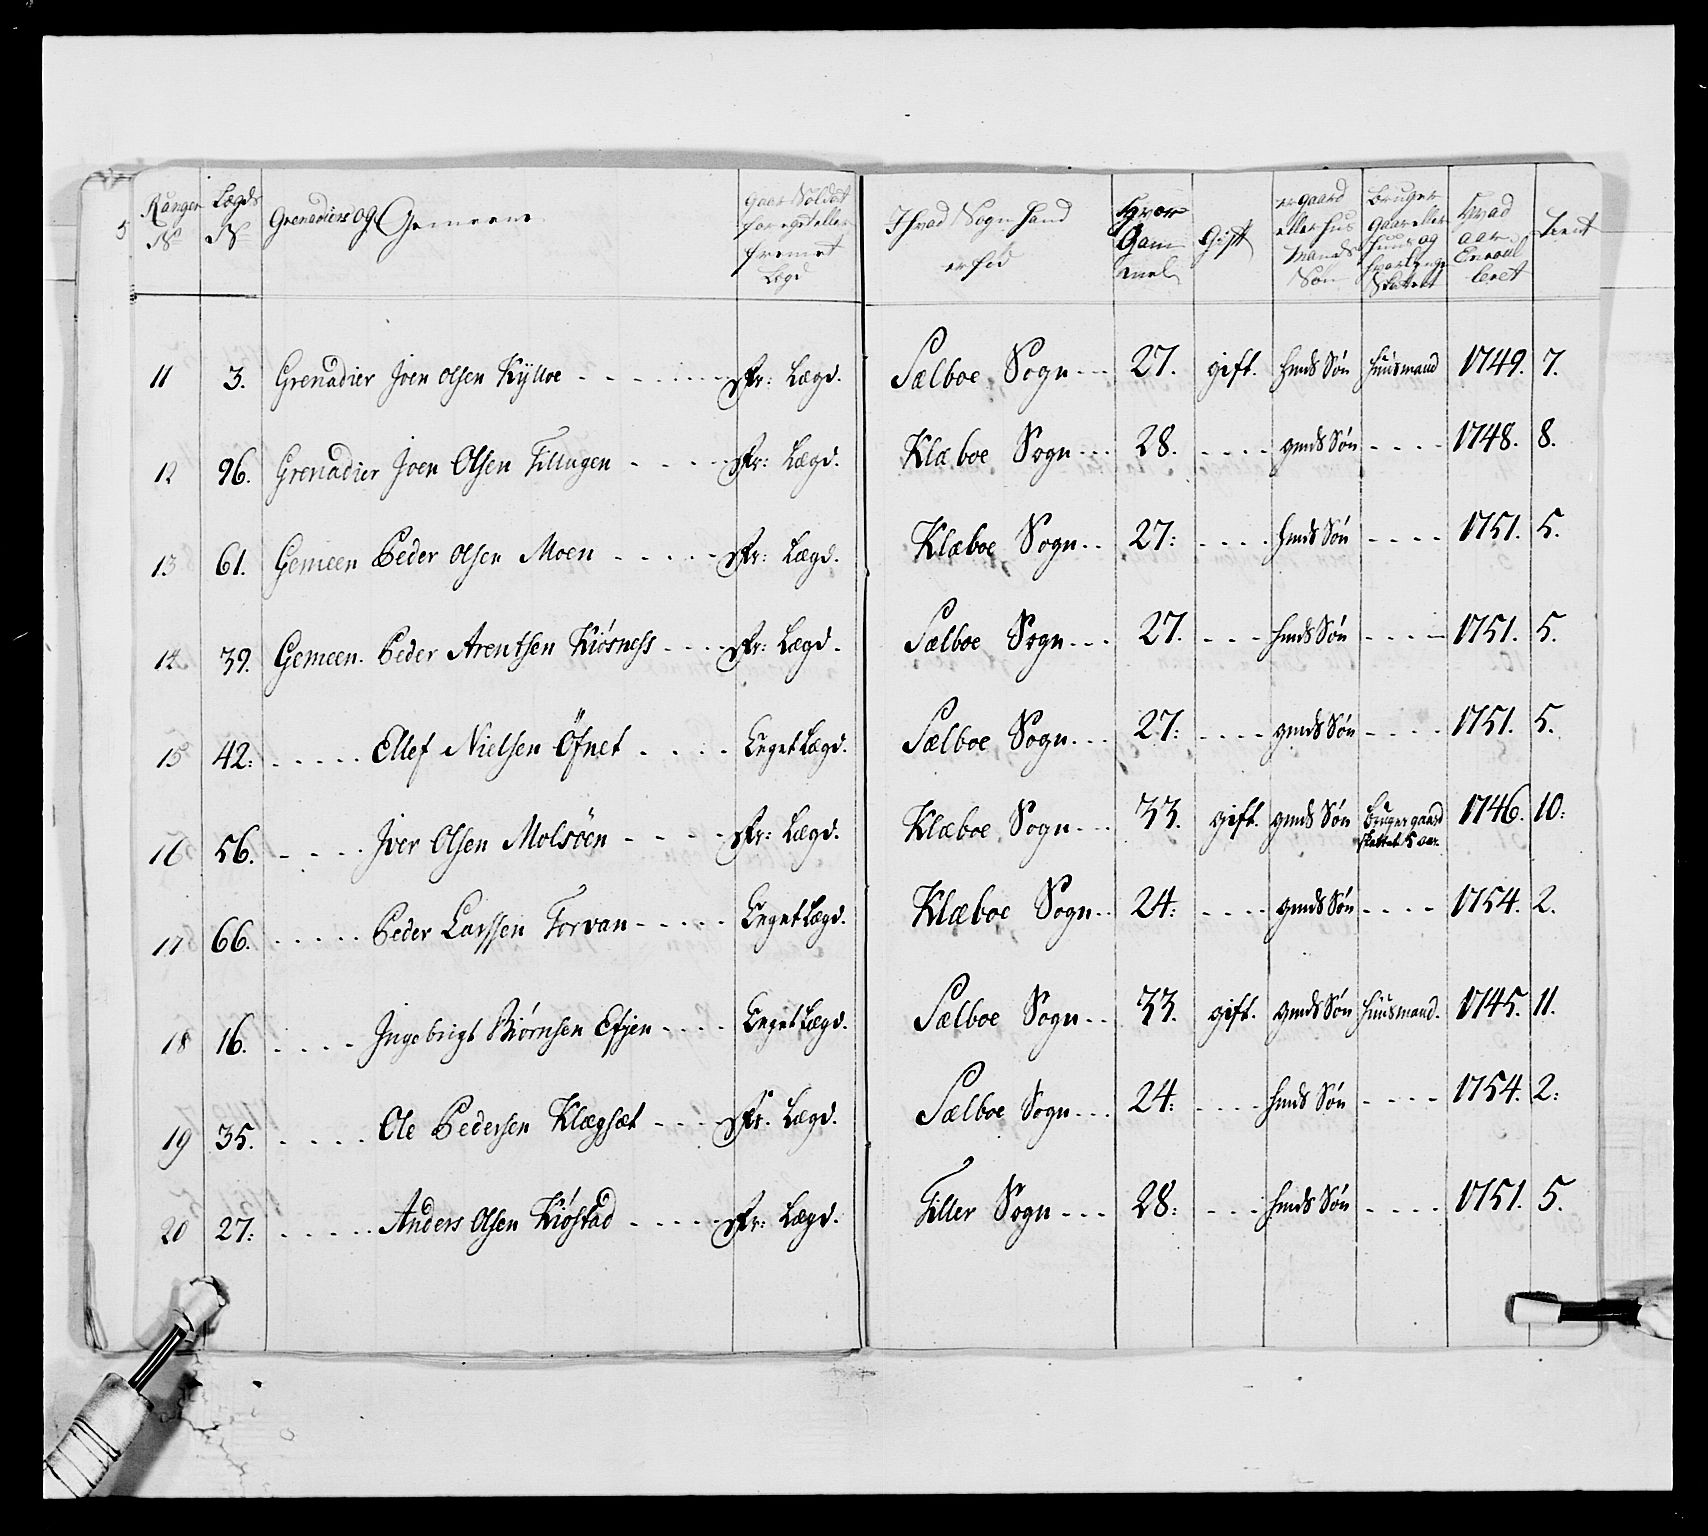 5
Ranger No | Lægds No | Grenadiers og Gemeene | gaar Soldat for eget eller fremet Lægd | I hvad Sogn hand er fød | Hvor Gammel | Gift | er gaard eller hus Mands Søn | Bruger Gaar eller Huus og hvor lenge Skattet | Hvad aar Enroulleret | tient
11 3. Grenadier Joen Olsen Kylloe - - - - - - fr: Lægd. Sælboe Sogn - - - 27. gift. hmds Søn huusmand 1749. 7.
12 96. Grenadier Joen Olsen Tillugen - - - - fr: Lægd. Klæboe Sogn - - - 28. - - - - gmds Søn - - - - 1748. 8.
13 61. Gemeen Peder Olsen Moen - - - - - fr: Lægd. Klæboe Sogn - - 27: - - - - hmds Søn - - - - 1751. 5.
14 39. Gemeen. Peder Arentsen Kiösness - - - - fr: Lægd. Sælboe Sogn - - - 27. - - - hmds Søn - - - - 1751. 5.
15 42: - - - - - Ellef Nielsen Öfnet - - - - Eeget Lægd. Sælboe Sogn - - - 27: - - - - gmds Søn - - - - 1751. 5.
16 56. - - - - Iver Olsen Molsöen - - - - fr: Lægd. Klæboe Sogn - - - 33. gift. gmds Søn bruger gaard skattet 5 aar. 1746. 10:
17 66. - - - - - Peder Larssen Torvan - - - - - Eeget Lægd. Klæboe Sogn - - 24: - - - - gmds Søn - - - - 1754. 2.
18 16. - - - - Ingebrigt Biörnsen Efjen - - - - Eeget Lægd. Sælboe Sogn - - 33. gift. gmds Søn huusmand. 1745. 11.
19 35. - - - - - Ole Pedersen Klægsæt - - - - fr. Lægd. Sælboe Sogn - - - 24: - - - - hmds Søn - - - - 1754. 2:
20 27: - - - - - Anders Olsen Kiöstad - - - - - fr: Lægd. Tiller Sogn - - - 28: - - - hmds Søn - - - - 1751. 5.